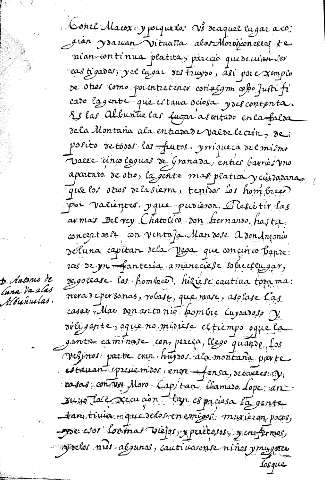 Conel Maoox: y porque los Vs de aquel lugar aco-
gian y davan vitualla alos Moros, con ellos te
nian continua platica, parecio que devian ser
castigados, y el lugar destruydo, asi por exemplo
de otros como por entretener con algun cosso justifi
cado la gente que estava ociosa y descontenta.
Es las Albuñuelas lugar asentado en la falda
de la Montaña ala entrada de Valdeleclin, de-
posito de todos los frutos, y riqueza del mismo
valle cinco leguas de Granada, en tres barrios uno
apartado de otro, la gente mas platica y ciudadana
que los otros de la sierra, tenidos los hombres
por valientes, y que pudieron Resistir las
armas del rey Chatolico don hernando, hasta
concertarse con ventaja Mandose A don Antonio
de luna capitan de la Vega que con cinco bande
ras de ynfanteria amaneciese sobre el lugar,
degollase los hombres, hiziese cautiva toda ma-
nera de personas, robase, quemase, asolase las
casas, Mas don Antonio hombre cuydadoso y
diligente, o que no midiese el tiempo o que la
gente caminase con pereça, llego quando los
Vezinos parte eran huydos ala montaña parte
estavan prevenidos en defensa de calles y
casas con un Moro Capitan llamado Lope: an
la gente
tan tiuia que delos enemigos murieron pocos,
y de esos los mas viejos, y pereçosos, y enfermos,
y de los nros. algunos, cautivaronse niños y mugeres
los que
D. Antonio de
luna va alas
Albuñuelas.